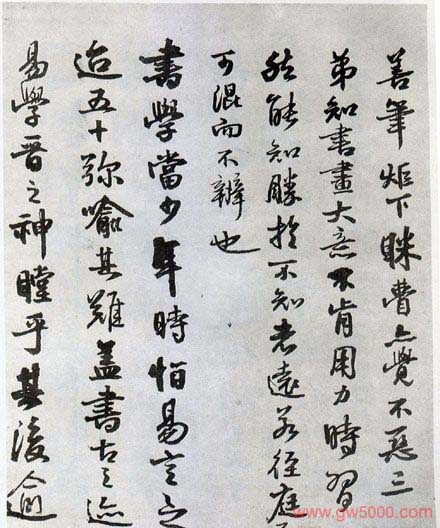 善筆炬下眯費亦覺不惡三
弟知書畫大意不肯用力時習
然能知勝於不知者遠若徑庭
可混而不辨也
書學當少年時怕易言之
迨五十弥喻其難蓋書古之迹
易學晋之神瞠乎其後
www.gw5000.com